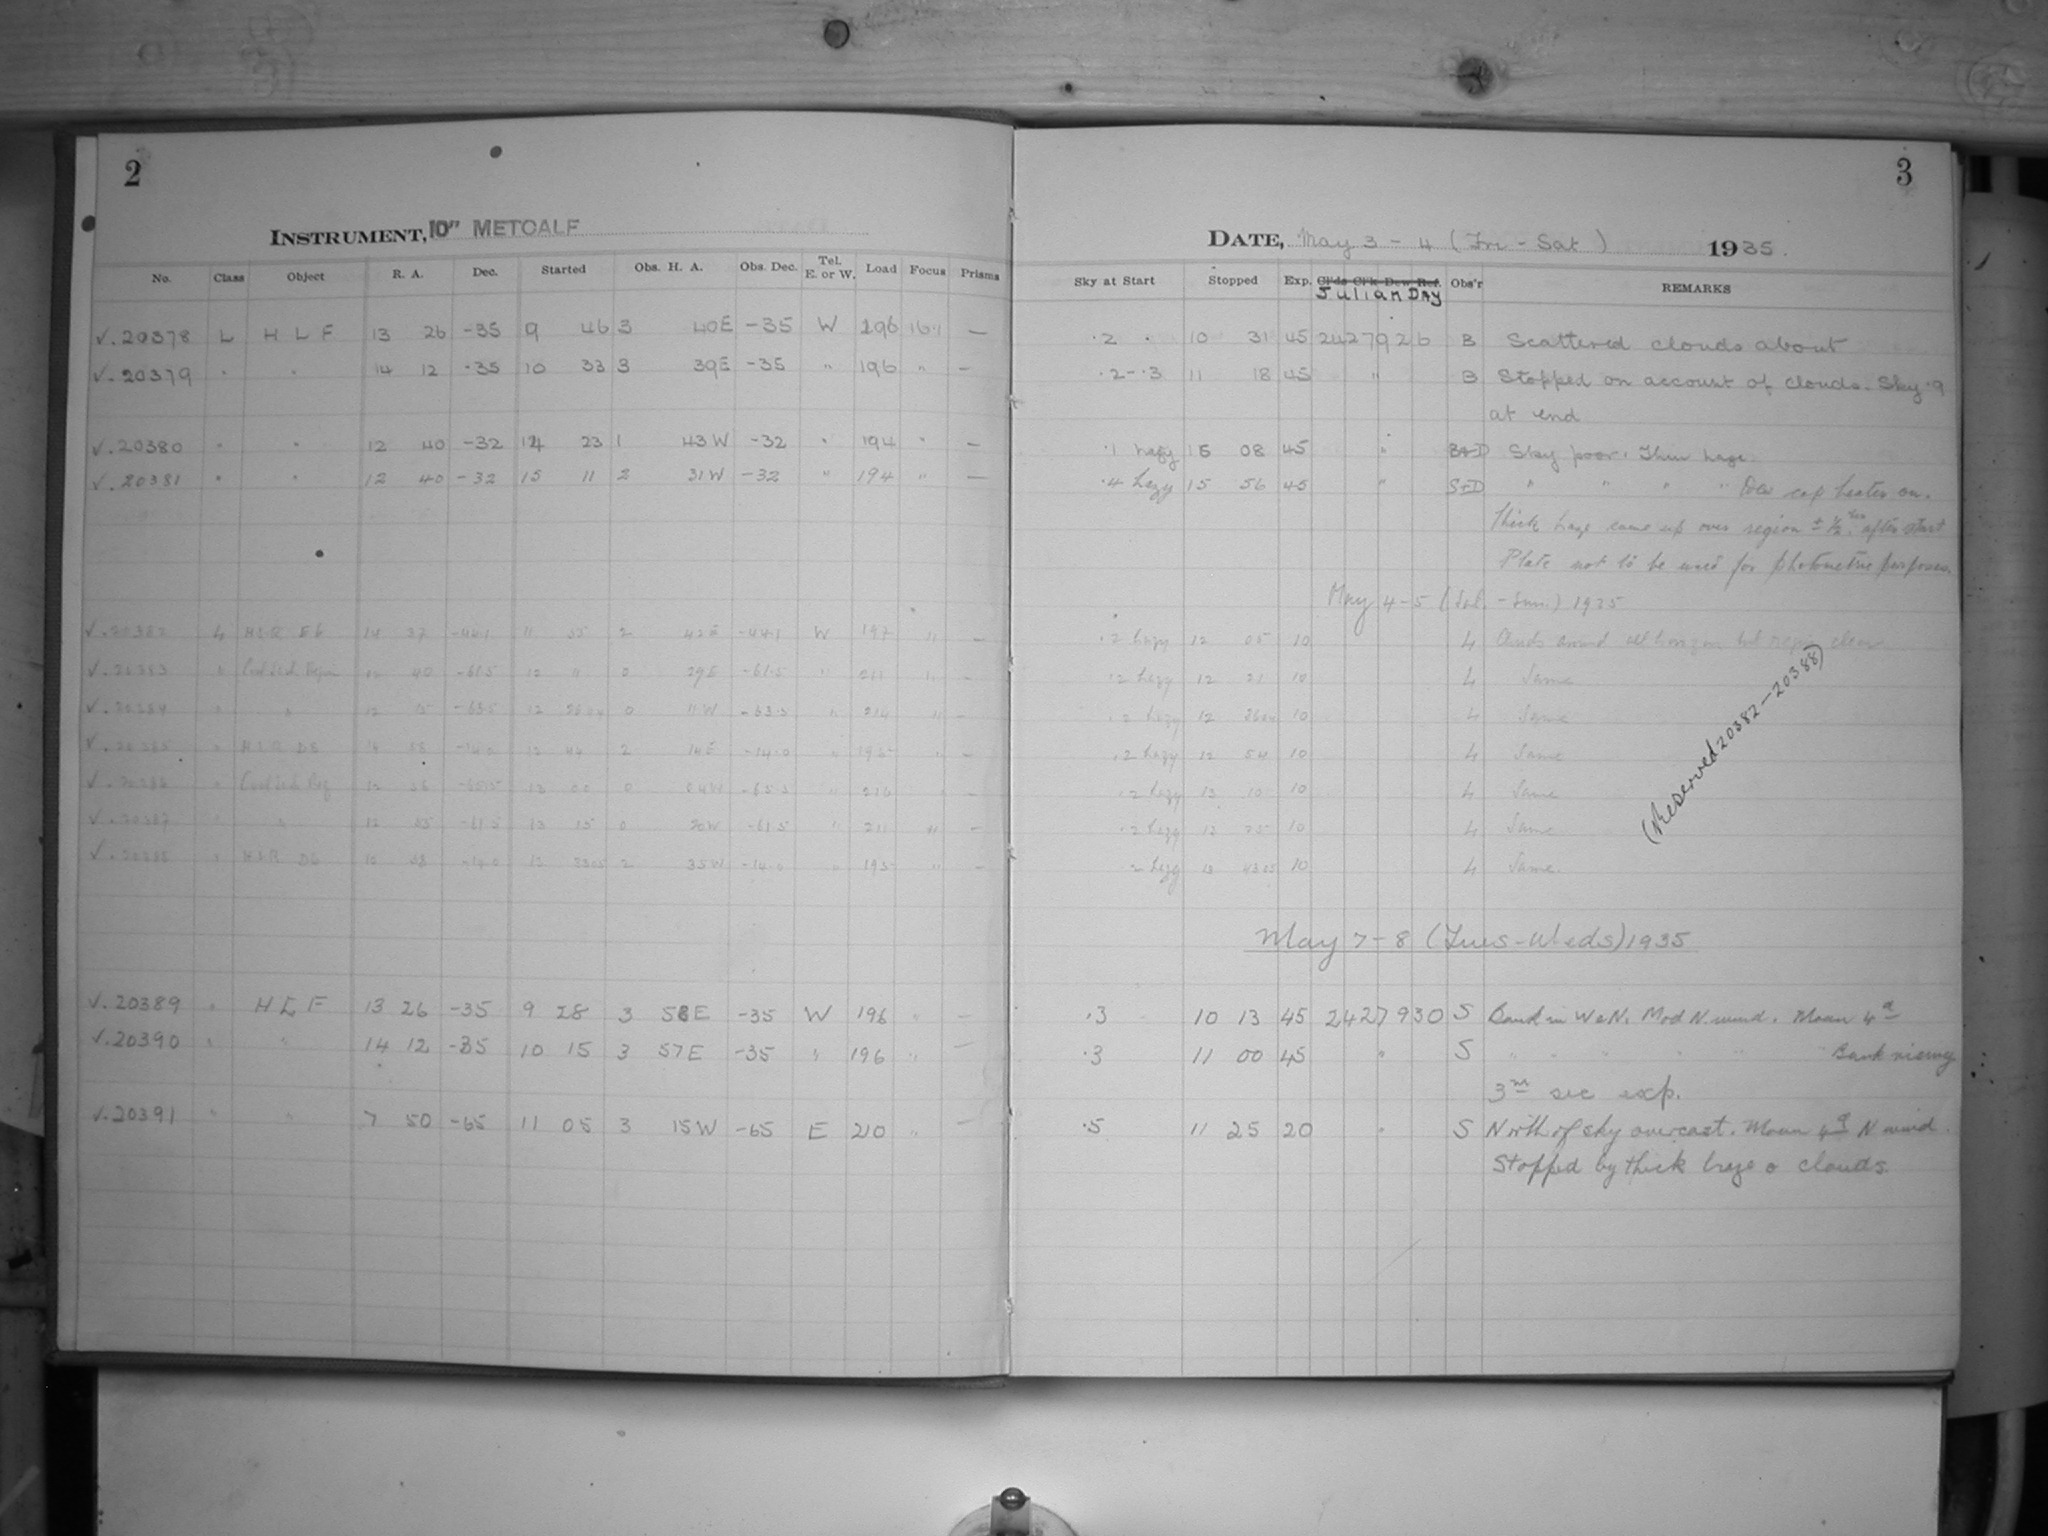 2
INSTRUMENT, 10" METCALF
No. Class Object R. A. Dec. Started Obs. H. A. Obs. Dec. Tel. E. or W. Load Focus Prisms
✓.20378 L H L F 13 26 -35 9 46 3 40E -35 W 196 16.1 —
✓.20379 " " 14 12 -35 10 33 3 39E -35 " 196 " —
✓.20380 " " 12 40 -32 14 23 1 43W -32 " 194 " —
✓.20381 " " 12 40 -32 15 11 2 31W -32 " 194 " —
✓.20382 14 37 -44.1 11 55 2 42E -44.1 W 197 " —
✓.20383 " 12 40 -61.5 12 11 0 29E -61.5 " 211 " —
✓. " " 12 -63.5 12 0 11W -63.5 " 214 " —
✓.20385 " -14.0 12 44 2 14E -14.0 " 195 " —
✓. " 12 0 " 216 " —
✓.20387 " " 12 -61.5 13 15 0 20W -61.5 " 211 " —
✓. " -14.0 2 35W -14.0 " 195 " —
✓.20389 " H L F 13 26 -35 9 28 3 58E -35 W 196 " —
✓.20390 " " 14 12 -35 10 15 3 57E -35 " 196 " —
✓.20391 " " 7 50 -65 11 05 3 15W -65 E 210 " —
3
DATE, May 3 - 4 (Fri - Sat) 1935.
Sky at Start Stopped Exp. Cl'ds Cl'k Dew Ref. Obs'r REMARKS
Julian Day
.2 10 31 45 2427926 B Scattered clouds about
.2-.3 11 18 45 " B Stopped on account of clouds. Sky .9
at end
.1 hazy 15 08 45 " B+D Sky poor. Thin haze.
.4 hazy 15 56 45 " S+D " " " " Dew cap heater on.
Thick haze came up over region ± ½ after start
Plate not to be used for photometric purposes.
May 4-5 (Sat. - Sun.) 1935
.2 hazy 12 05 10 4 Clouds around all horizon but region clear
.2 hazy 12 21 10 4 Same
.2 hazy 12 10 4 Same
.2 hazy 12 54 10 4 Same
.2 hazy 13 10 10 4 Same
.2 hazy 25 10 4 Same
.2 hazy 10 4 Same.
(Reserved 20382-20388)
May 7-8 (Tues-Weds) 1935
.3 10 13 45 2427930 S Bank in W & N. Mod N. wind. Moon 4d
.3 11 00 45 " S " " " " " Bank rising
3m sec exp.
.5 11 25 20 " S North of sky overcast. Moon 4d N wind.
Stopped by thick haze & clouds.